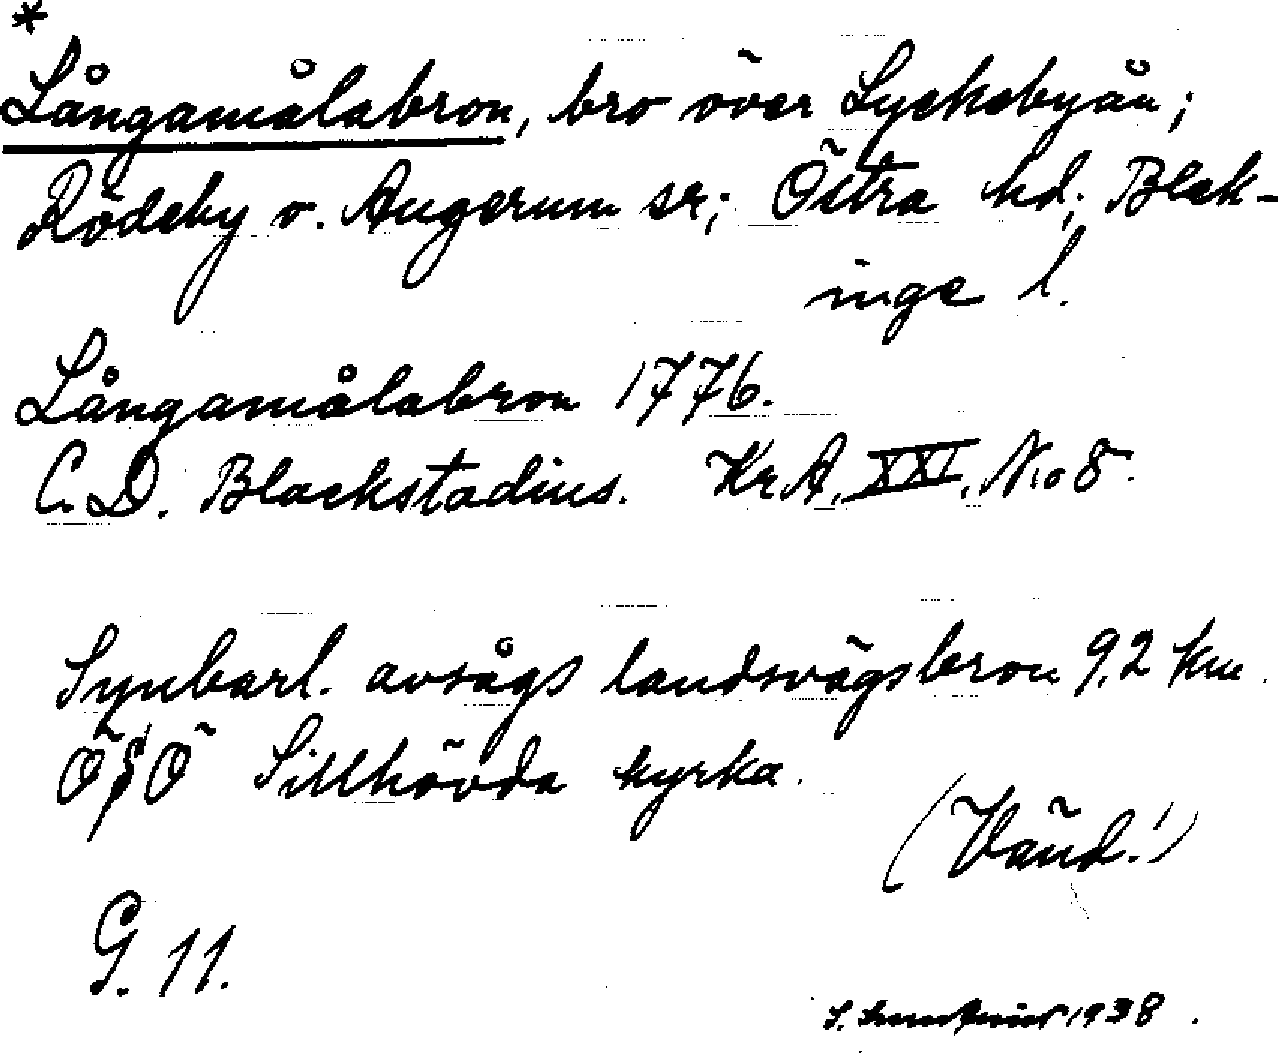 *
Långamålabron, bro över Lyckebyån;
Rödeby o. Augerum sr; Östra hd; Blek-
inge l.
Långamålabron 1776.
C. D. Blackstadius. Kr.A. XXI. No 8.
Synbarl. avsågs landsvägsbron 9,2 km
ÖSÖ Sillhövda kyrka.
(Vänd!)
G. 11.
S. 1938.